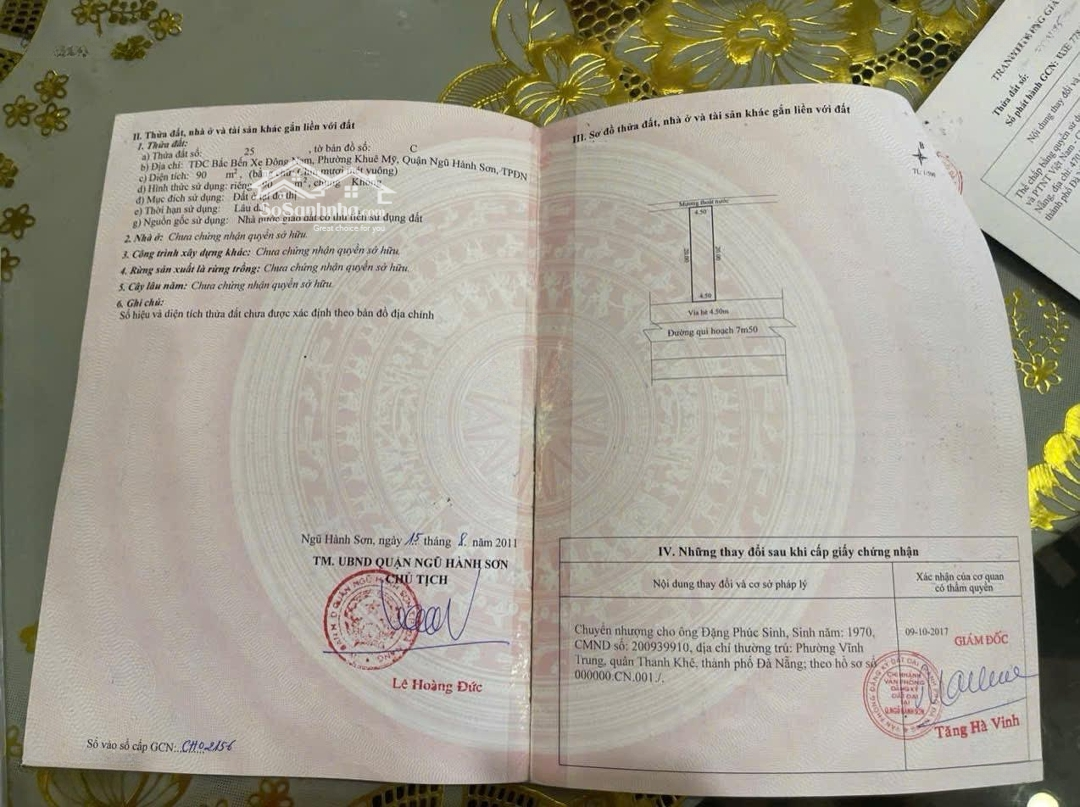 II. Thửa đất, nhà ở và tài sản khác gắn liền với đất
1. Thửa đất:
a) Thửa đất số: 25 , tờ bản đồ số: C
b) Địa chỉ: TDC Bắc Bến Xe Đông Nam, Phường Khuê Mỹ, Quận Ngũ Hành Sơn, TPĐN
c) Diện tích: 90 m², (bằng chữ: Chín mươi mét vuông)
d) Hình thức sử dụng: riêng 90 m², chung Không
đ) Mục đích sử dụng: Đất ở tại đô thị
e) Thời hạn sử dụng: Lâu dài
g) Nguồn gốc sử dụng: Nhà nước giao đất có thu tiền sử dụng đất
2. Nhà ở: Chưa chứng nhận quyền sở hữu.
3. Công trình xây dựng khác: Chưa chứng nhận quyền sở hữu.
4. Rừng sản xuất là rừng trồng: Chưa chứng nhận quyền sở hữu.
5. Cây lâu năm: Chưa chứng nhận quyền sở hữu.
6. Ghi chú:
Số hiệu và diện tích thửa đất chưa được xác định theo bản đồ địa chính
SoSanhnha.com
Great choice for you
Ngũ Hành Sơn, ngày 15 tháng 8 năm 2011
TM. UBND QUẬN NGŨ HÀNH SƠN
CHỦ TỊCH
Lê Hoàng Đức
Số vào sổ cấp GCN: CH02156
III. Sơ đồ thửa đất, nhà ở và tài sản khác gắn liền với đất
B
TL: 1/500
Mương thoát nước
4.50
20.00
20.00
4.50
Vỉa hè 4.50m
Đường qui hoạch 7m50
IV. Những thay đổi sau khi cấp giấy chứng nhận
Nội dung thay đổi và cơ sở pháp lý
Xác nhận của cơ quan
có thẩm quyền
Chuyển nhượng cho ông Đặng Phúc Sinh, Sinh năm: 1970,
CMND số: 200939910, địa chỉ thường trú: Phường Vĩnh
Trung, quận Thanh Khê, thành phố Đà Nẵng; theo hồ sơ số
000000.CN.001./.
09-10-2017
GIÁM ĐỐC
CHI NHÁNH
VĂN PHÒNG
ĐĂNG KÝ
ĐẤT ĐAI
TẠI
Q.NGŨ HÀNH SƠN
Tăng Hà Vinh
Thửa đất số:
Số phát hành GCN:
Nội dung thay đổi và
Thế chấp bằng quyền sử dụ
và PTNT Việt Nam -
Nẵng, địa chỉ: 470
thành phố Đà